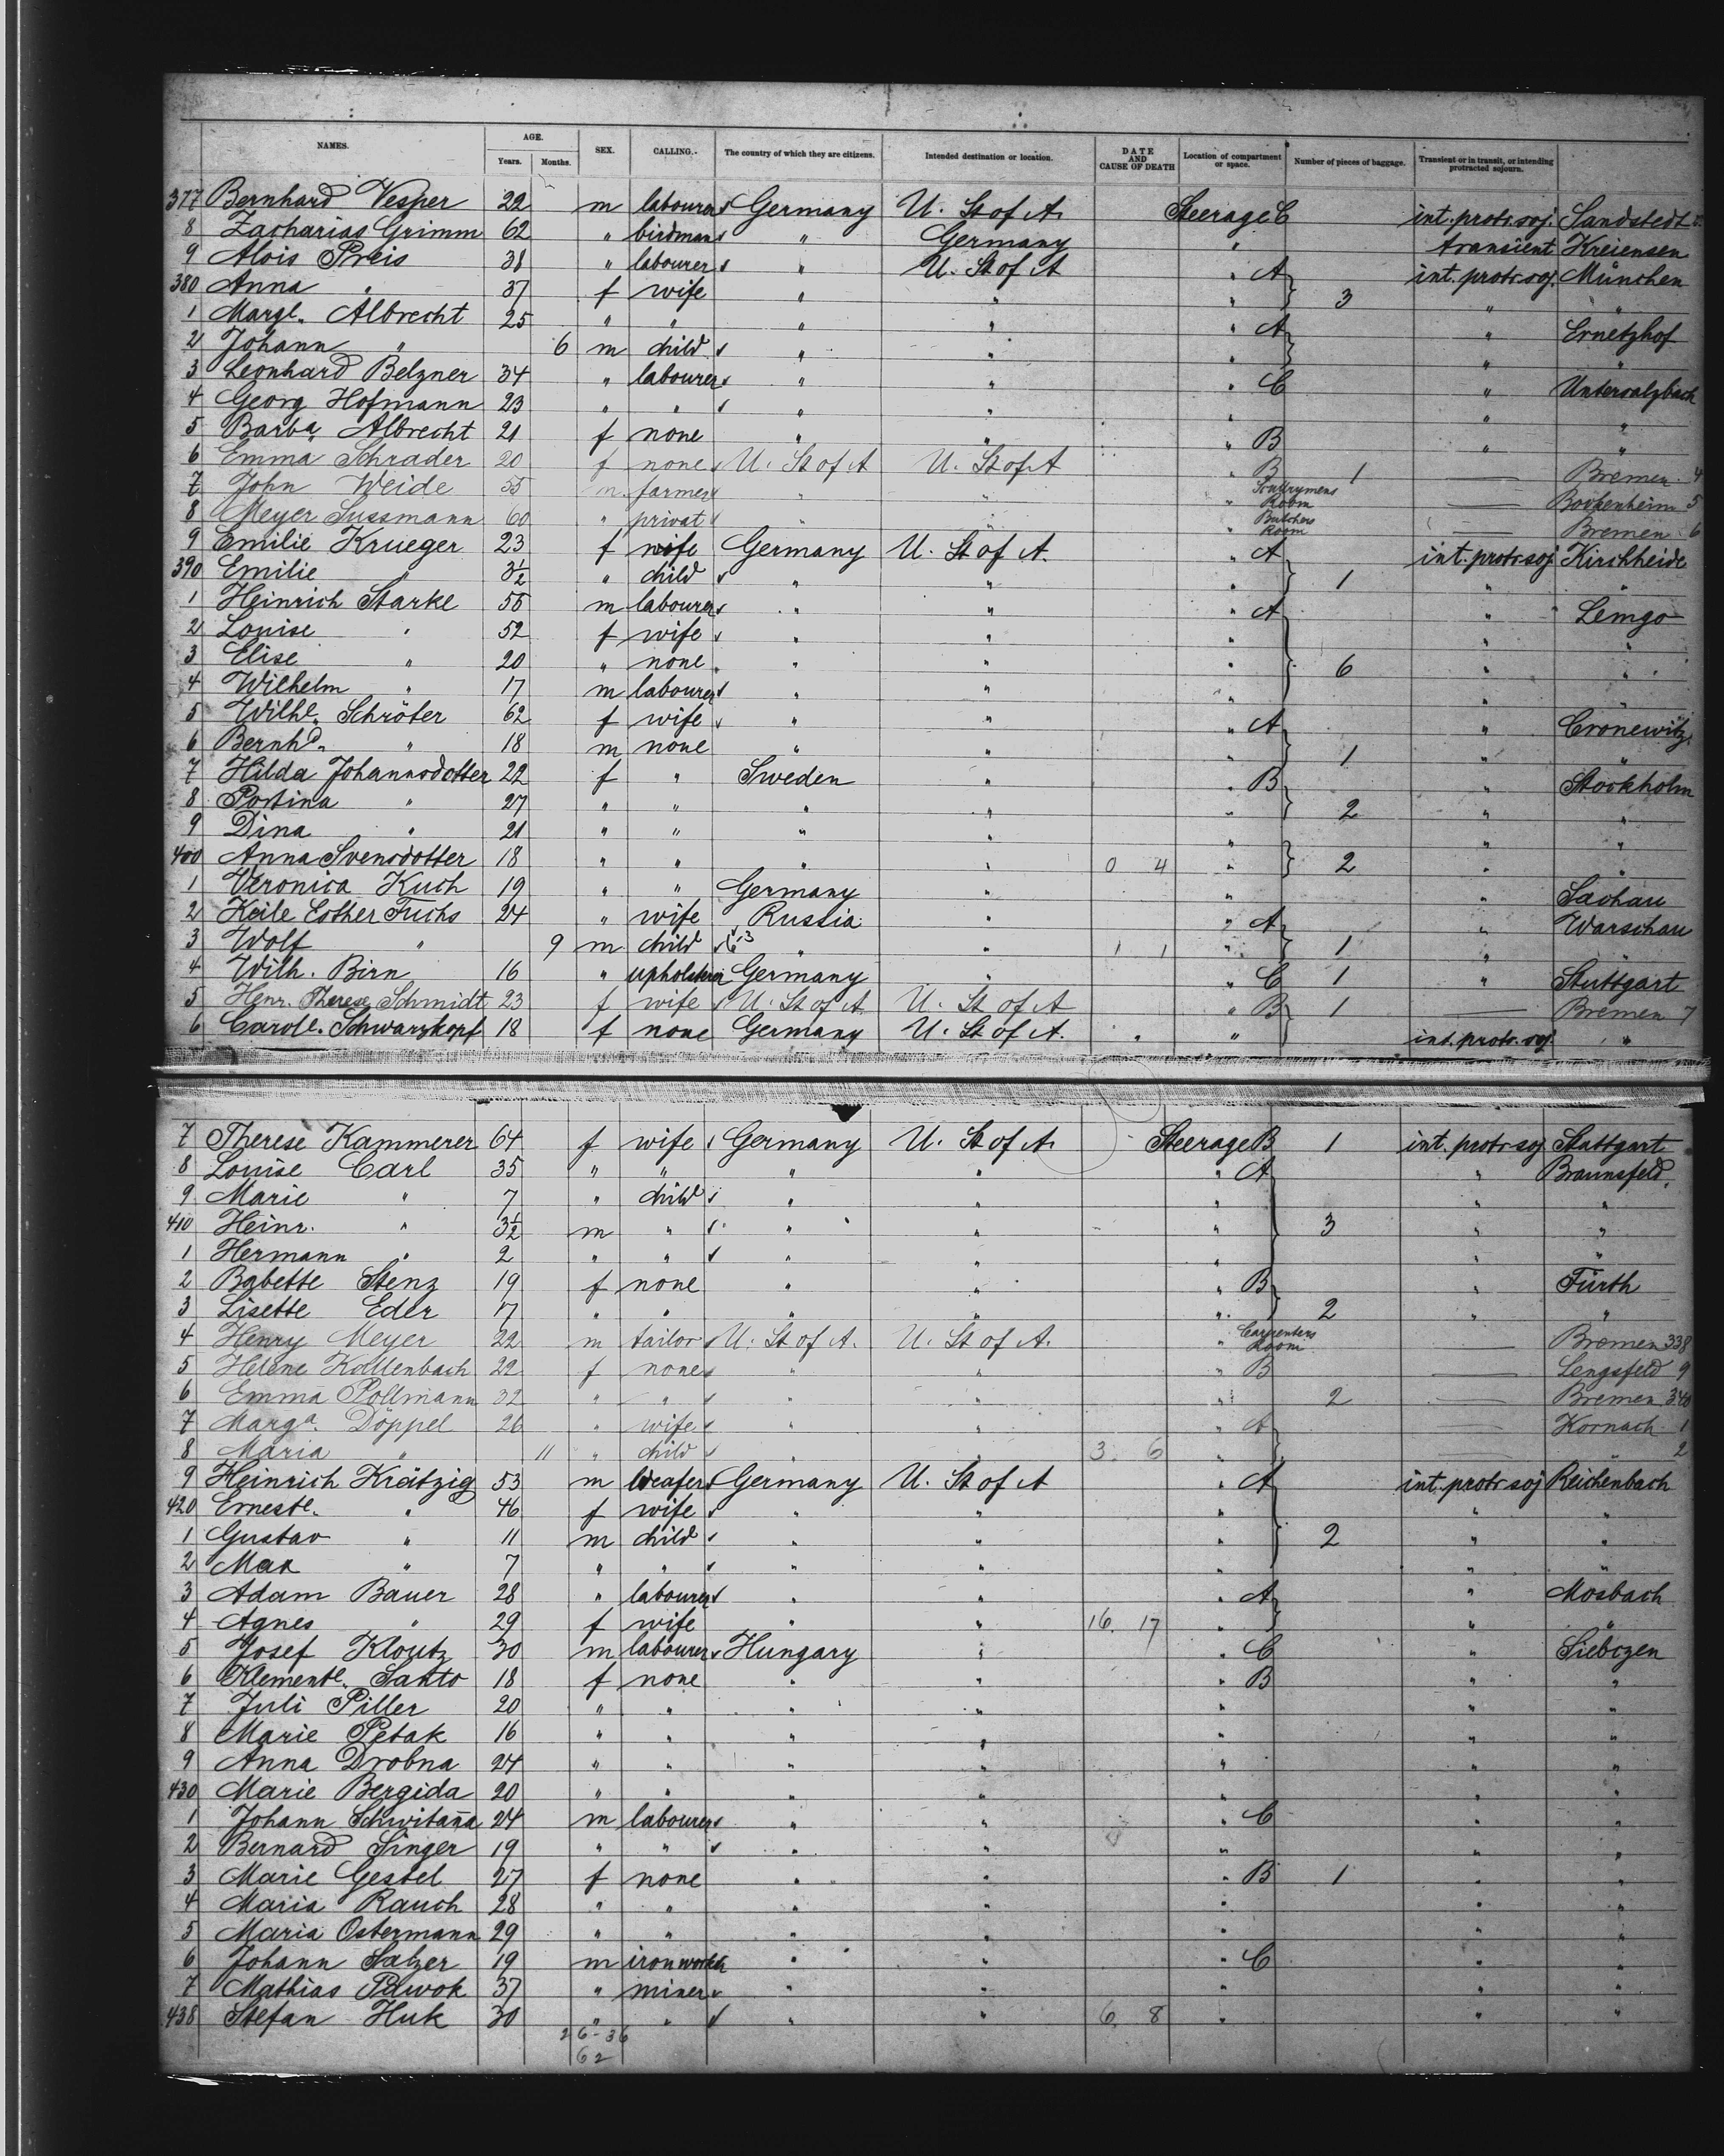 NAMES. AGE. Years. Months. SEX. CALLING. The country of which they are citizens. Intended destination or location. DATE AND CAUSE OF DEATH Location of compartment or space. Number of pieces of baggage. Transient or in transit, or intending protracted sojourn.
377 Bernhard Vesper 22 m labourer Germany U. St of A. Steerage C int. protr. soj. Sandstedt
8 Zacharias Grimm 62 " birdman " Germany " transient Kreiensen
9 Alois Preis 38 " labourer " U. St of A " A int. protr. soj. München
380 Anna " 37 f wife " " " 3 " "
1 Margt. Albrecht 25 " " " " " A " Ernetzhof
2 Johann " 6 m child " " " " "
3 Leonhard Belzner 34 " labourer " " " C " Untersalzbach
4 Georg Hofmann 23 " " " " " " "
5 Barba Albrecht 21 f none " " " B " "
6 Emma Schrader 20 f none U. St of A U. St of A " B 1 — Bremen 4
7 John Weide 55 m farmer " " " Room — Bockenheim 5
8 Meyer Sussmann 60 " privat " " " Butchers Room — Bremen 6
9 Emilie Krueger 23 f wife Germany U. St of A. " A int. protr. soj. Kirchheide
390 Emilie " 3½ " child " " " 1 " "
1 Heinrich Starke 55 m labourer " " " A " Lemgo
2 Louise " 52 f wife " " " " "
3 Elise " 20 " none " " " 6 " "
4 Wilhelm " 17 m labourer " " " " "
5 Wilhe. Schröter 62 f wife " " " A " Cronewitz
6 Bernhd. " 18 m none " " " 1 " "
7 Hilda Johannsdotter 22 f " Sweden " " B " Stockholm
8 Postina " 27 " " " " " 2 " "
9 Dina " 21 " " " " " " "
400 Anna Svensdotter 18 " " " " 0 4 " 2 " "
1 Veronica Kuch 19 " " Germany " " " Sachau
2 Keile Esther Fuchs 24 " wife Russia " " A " Warschau
3 Wolf " 9 m child " " 1 1 " 1 " "
4 Wilh. Birn 16 " upholsterer Germany " " C 1 " Stuttgart
5 Henr. Therese Schmidt 23 f wife U. St of A U. St of A " B 1 — Bremen 7
6 Carole. Schwarzkopf 18 f none Germany U. St of A. " int. protr. soj. "
7 Therese Kammerer 64 f wife Germany U. St of A. Steerage B 1 int. protr. soj. Stattgart
8 Louise Carl 35 " " " " " A " Braunsfeld
9 Marie " 7 " child " " " " "
410 Heinr. " 3½ m " " " " 3 " "
1 Hermann " 2 " " " " " " "
2 Babette Stenz 19 f none " " " B " Fürth
3 Lisette Eder 17 " " " " " 2 " "
4 Henry Meyer 22 m tailor U. St of A. U. St of A. " Carpenters Room — Bremen 338
5 Helene Kottenbach 22 f none " " " B — Lengsfeld 9
6 Emma Pollmann 32 " " " " " 2 — Bremen 340
7 Marga. Döppel 26 " wife " " " A — Kornach 1
8 Maria " 11 " child " " 3. 6 " — " 2
9 Heinrich Krätzig 53 m weafer Germany U. St of A " A int. protr. soj Reichenbach
420 Ernestl. " 46 f wife " " " " "
1 Gustav " 11 m child " " " 2 " "
2 Max " 7 " " " " " " "
3 Adam Bauer 28 " labourer " " " A " Mosbach
4 Agnes " 29 f wife " " 16. 17 " " "
5 Josef Kloutz 30 m labourer Hungary " " C " Siebizen
6 Klementl. Sahto 18 f none " " " B " "
7 Juli Piller 20 " " " " " " "
8 Marie Petak 16 " " " " " " "
9 Anna Drobna 24 " " " " " " "
430 Marie Bergida 20 " " " " " " "
1 Johann Schwitaña 24 m labourer " " " C " "
2 Bernard Singer 19 " " " " " " "
3 Marie Gestel 27 f none " " " B 1 " "
4 Maria Rauch 28 " " " " " " "
5 Maria Ostermann 29 " " " " " " "
6 Johann Salzer 19 m ironworker " " " C " "
7 Mathias Pawok 37 " miner " " " " "
438 Stefan Huk 30 " " " " 6. 8 " " "
26-36
62